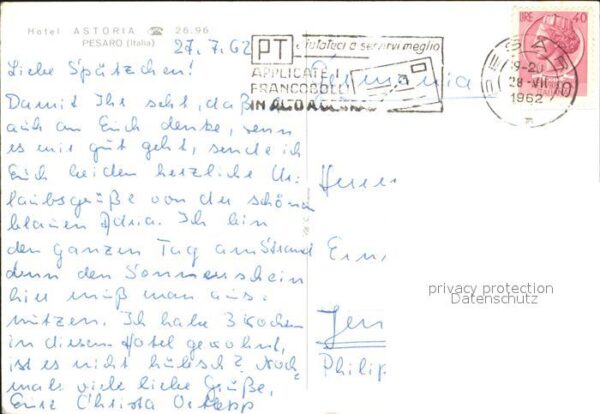 Hotel ASTORIA ☎ 26.96
PESARO (Italia)
27.7.62
Liebe Spätzchen!
Damit Ihr seht, daß
auch an Euch denke, wenn
es mir gut geht, sende ich
Euch beiden herzliche Ur-
laubsgrüße von der schönen
blauen Adria. Ich bin
den ganzen Tag am Strand
denn den Sonnenschein
hier muß man aus-
nützen. Ich habe 3 Wochen
in diesem Hotel gewohnt,
ist es nicht hübsch? Noch-
mals viele liebe Grüße,
Eure Christa
PT aiutateci a servirvi meglio
APPLICATE I
FRANCOBOLLI
IN ALTO A DESTRA
LIRE 40
PESARO
19-20
28-VII
1962
Germania
Jen
Philip
privacy protection
Datenschutz